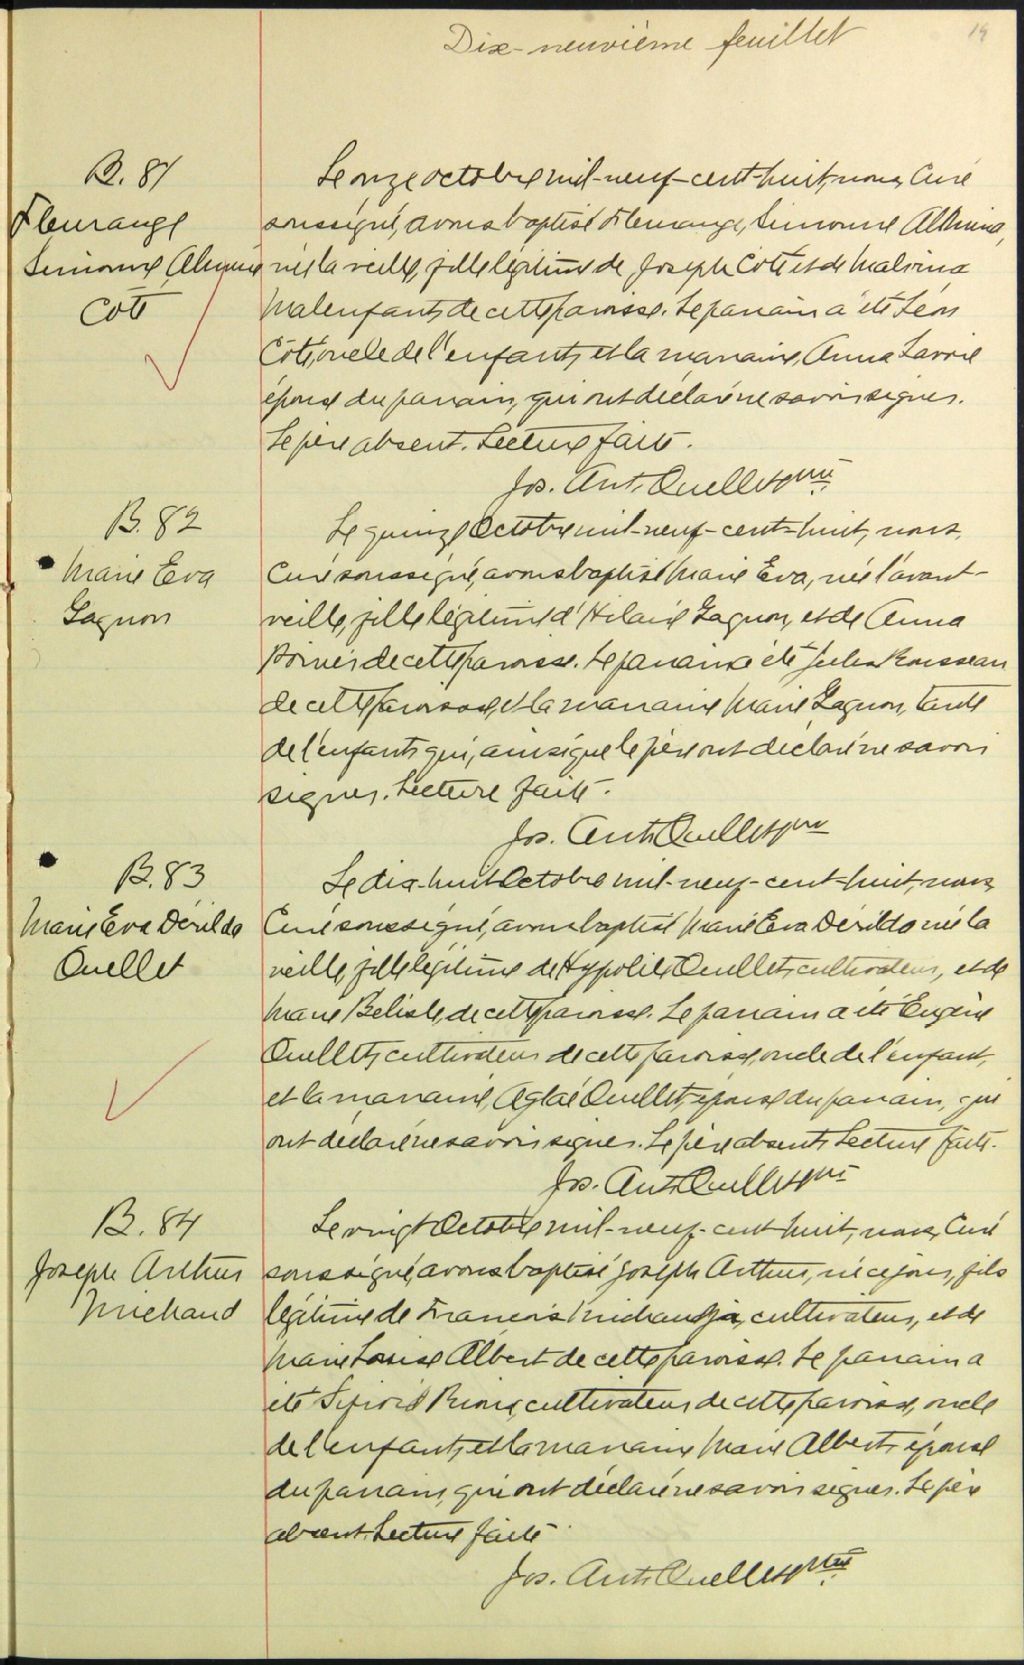 Dix-neuvième feuillet
19
B. 81
Fleurange
Simonne, Almina
Côté
Le onze octobre mil-neuf-cent-huit, nous, Curé
soussigné, avons baptisé Fleurange, Simonne Almina,
née la veille, fille légitime de Joseph Côté et de Malvina
Malenfant, de cette paroisse. Le parrain a été Léon
Côté, oncle de l'enfant, et la marraine, Anna Lavoie
épouse du parrain, qui ont déclaré ne savoir signer.
Le père absent. Lecture faite.
Jos. Ant. Ouellet ptre
B. 82
Marie Eva
Gagnon
Le quinze Octobre mil-neuf-cent-huit, nous,
Curé soussigné, avons baptisé Marie Eva, née l'avant-
veille, fille légitime d'Hilaire Gagnon, et de Anna
de cette paroisse. Le parrain a été Jules Rousseau
de cette paroisse, et la marraine Marie Gagnon, tante
de l'enfant, qui, ainsi que le père ont déclaré ne savoir
signer. Lecture faite.
Jos. Ant. Ouellet ptre
B. 83
Marie Eva Dérilda
Ouellet
Le dix-huit Octobre mil-neuf-cent-huit, nous,
Curé soussigné, avons baptisé Marie Eva Dérilda née la
veille, fille légitime de Hypolite Ouellet, cultivateur, et de
Marie Belisle, de cette paroisse. Le parrain a été Eugène
Ouellet, cultivateur de cette paroisse, oncle de l'enfant,
et la marraine, Aglaé Ouellet, épouse du parrain, qui
ont déclaré ne savoir signer. Le père absent. Lecture faite.
Jos. Ant. Ouellet ptre
B. 84
Joseph Arthur
Michaud
Le vingt Octobre mil-neuf-cent-huit, nous, Curé
soussigné, avons baptisé Joseph Arthur, né ce jour, fils
légitime de Francois Michaud, cultivateur, et de
Marie Louise Albert de cette paroisse. Le parrain a
été Rioux, cultivateur de cette paroisse, oncle
de l'enfant, et la marraine Marie Albert, épouse
du parrain, qui ont déclaré ne savoir signer. Le père
absent. Lecture faite.
Jos. Ant. Ouellet ptre